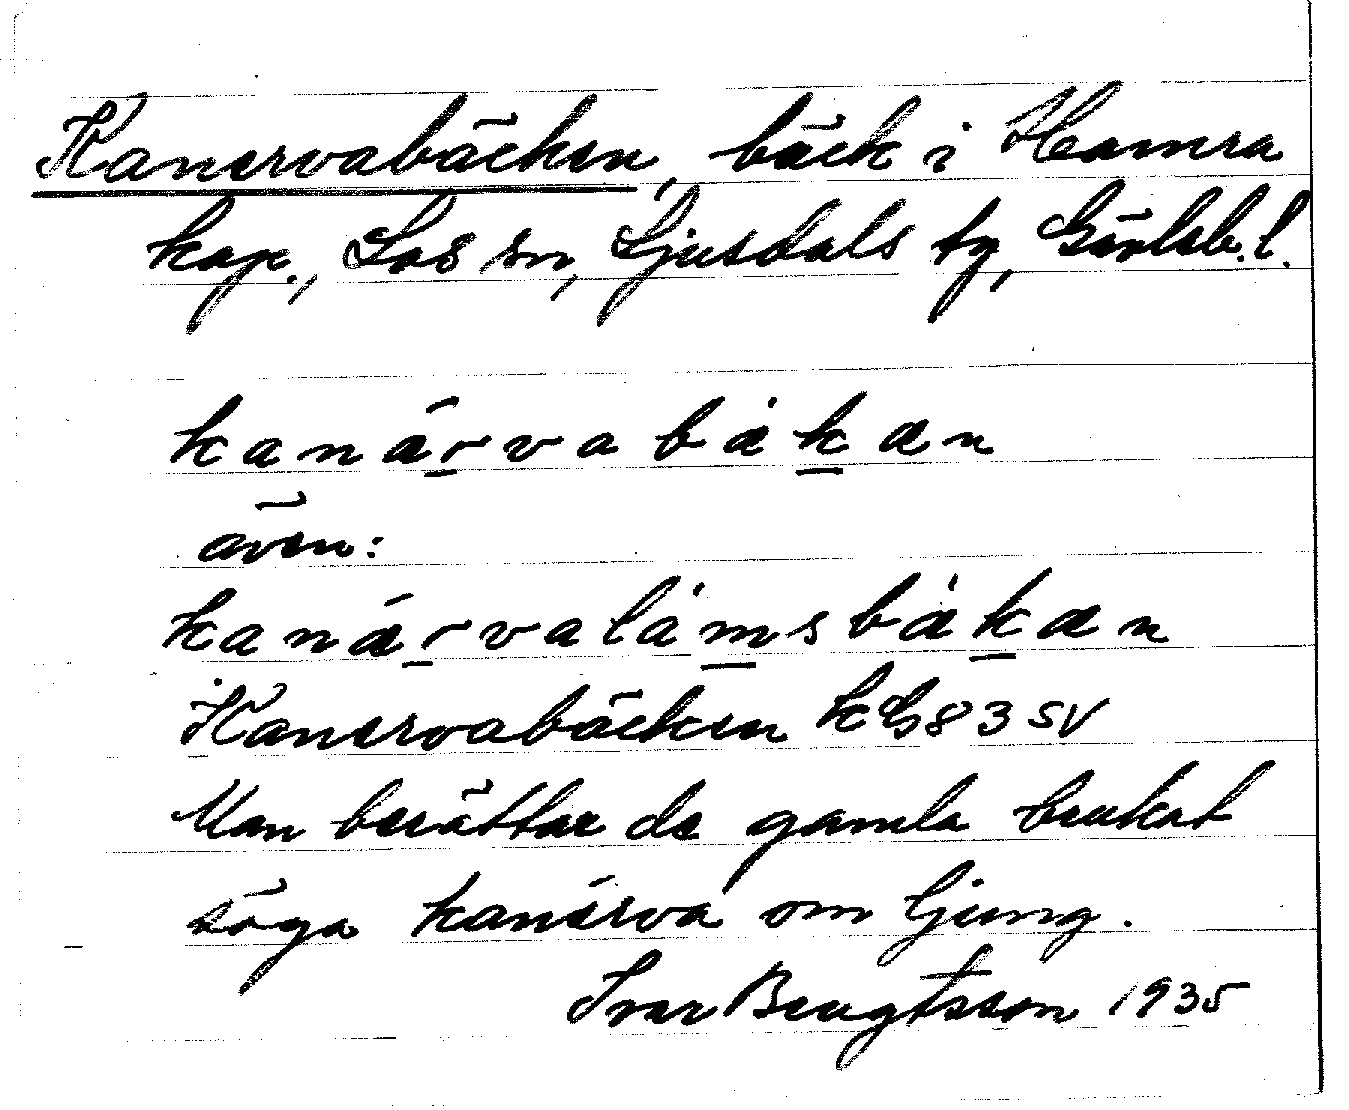 Kanervabäcken, bäck i Hamra
kap., Los sn, Ljusdals tg, Gävleb. l.
kanǽrvabækæn
även:
kanǽrvalámsbækæn
Kanervabäcken kG83SV
Man berättar de gamla brukat
säga kanérva om ljung.
Ivar Bengtsson 1935